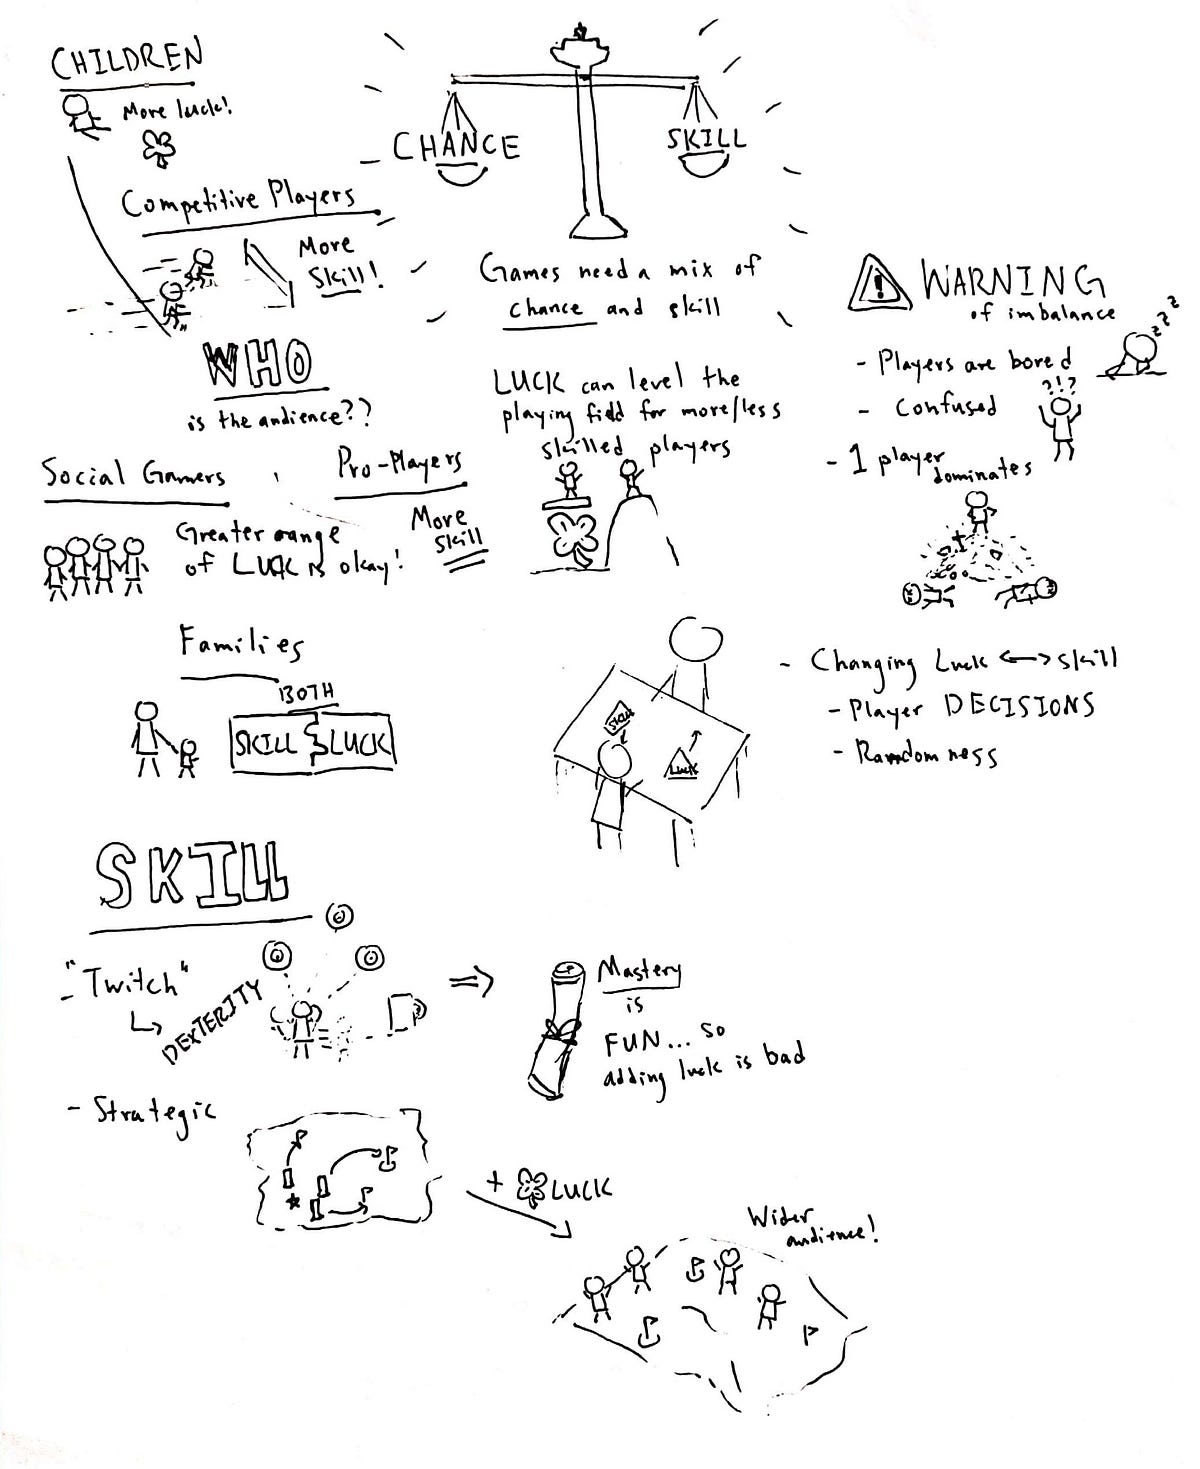 CHILDREN
More luck!
Competitive Players
More
Skill!
CHANCE
SKILL
Games need a mix of
chance and skill
WHO
is the audience??
Social Gamers
Greater range
of LUCK is okay!
Pro-Players
More
skill
Families
BOTH
SKILL
LUCK
LUCK can level the
playing field for more/less
skilled players
WARNING
of imbalance
- Players are bored
z z z z
- Confused
?!?
- 1 player
dominates
- Changing Luck <-> skill
- Player DECISIONS
- Randomness
Skill
Luck
SKILL
- "Twitch"
DEXTERITY
⇒
Mastery
is
FUN... so
adding luck is bad
- Strategic
+ LUCK
Wider
audience!